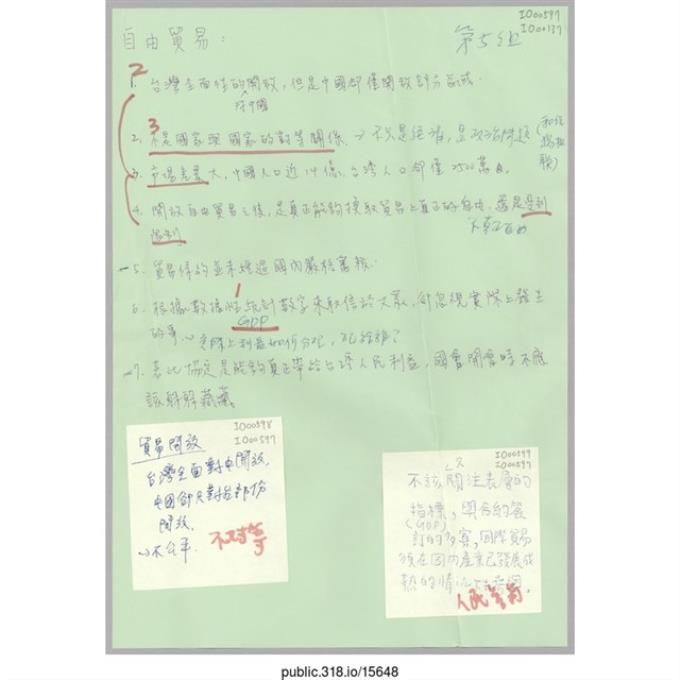 IO00597
IO00137
自由貿易：
第5組
2
1. 台灣全面性的開放，但是中國卻僅開放部分區域.
對中國
3
2. 不是國家與國家的對等關係. → 不只是經濟，是政治問題
3. 市場差異大，中國人口近14億，台灣人口卻僅2500萬
4. 開放自由貿易之後，是真正能夠換取貿易上真正的自由，還是
不真正自由
5. 貿易條約並未經過國內嚴格審核.
1
6. 根據數據性統計數字來取信於大眾，卻忽視實際上發生
GDP
的事 實際上利益如何分配，
7. 若此協定是能夠真正帶給台灣人民利益，國會開會時不應
該躲躲藏藏。
IO00598
IO00597
貿易開放
台灣全面對中開放，
中國卻只對台部份
開放，
不公平.
不對等
IO00599
IO00597
不該只關注表層的
指標，與合約簽
(GDP)
訂的多寡，國際貿易
須在國內產業已發展成
熟的情況下
人民
public.318.io/15648